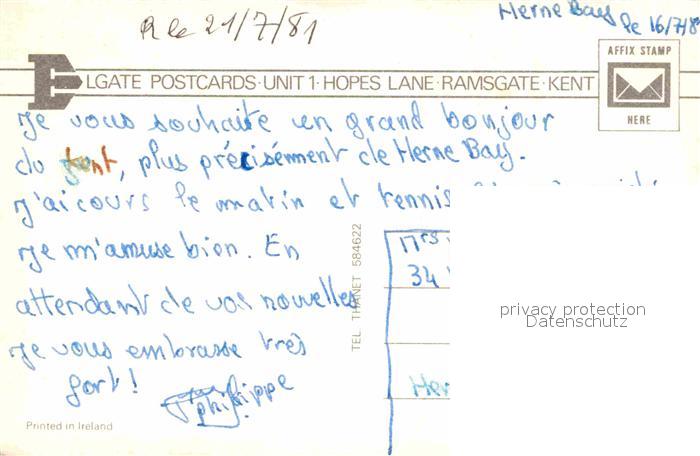 R le 21/7/81
Herne Bay le 16/7/8
AFFIX STAMP
HERE
ELGATE POSTCARDS·UNIT 1·HOPES LANE·RAMSGATE·KENT
Je vous souhaite un grand bonjour
du Kent, plus précisément de Herne Bay.
J'ai cours le matin et tennis
Je m'amuse bien. En
attendant de vos nouvelles
Je vous embrasse très
fort!
Philippe
TEL. THANET 584622
Mrs
34
Her
privacy protection
Datenschutz
Printed in Ireland